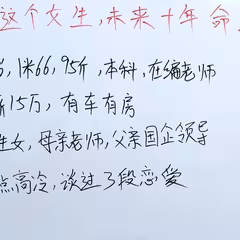 这个女生,未来十年命
,1米66,95斤,本科,在编老师
15万,有车有房
女,母亲老师,父亲国企领导
点高冷,谈过3段恋爱